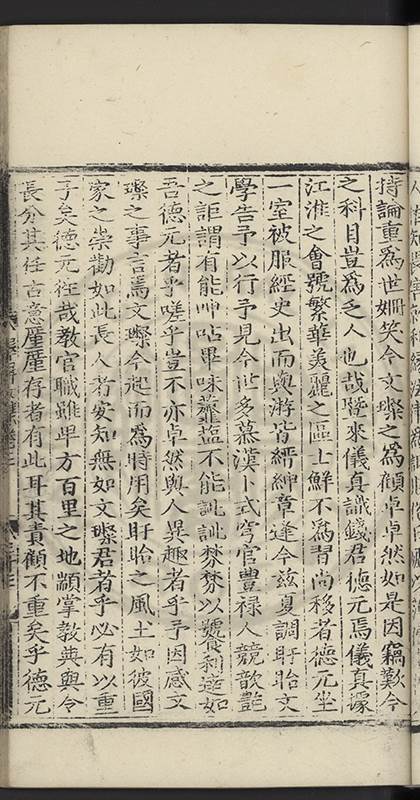 持論重為世姍笑今文璨之為顧卓卓然如是因竊歎今
之科目豈為乏人也哉曁來儀真識錢君德元焉儀真據
江淮之會號繁華美麗之區士鮮不為習尚移者德元坐
一室被服經史出而與游皆縉紳章逢今玆夏調盱眙文
學告予以行予見今世多慕漢卜式穹官豐祿人競歆豔
之詎謂有能呻呫畢味虀鹽不能訿訿棼棼以號食利達如
吾德元者乎嗟乎豈不亦卓然與人異趣者乎予因感文
璨之事言焉文璨今起而為時用矣盱眙之風土如彼國
家之崇勸如此長人者安知無如文璨君者乎必有以重
子矣德元往哉教官職雖卑方百里之地顓掌教典與令
長分其任古意厪厪存者有此耳其責顧不重矣乎德元